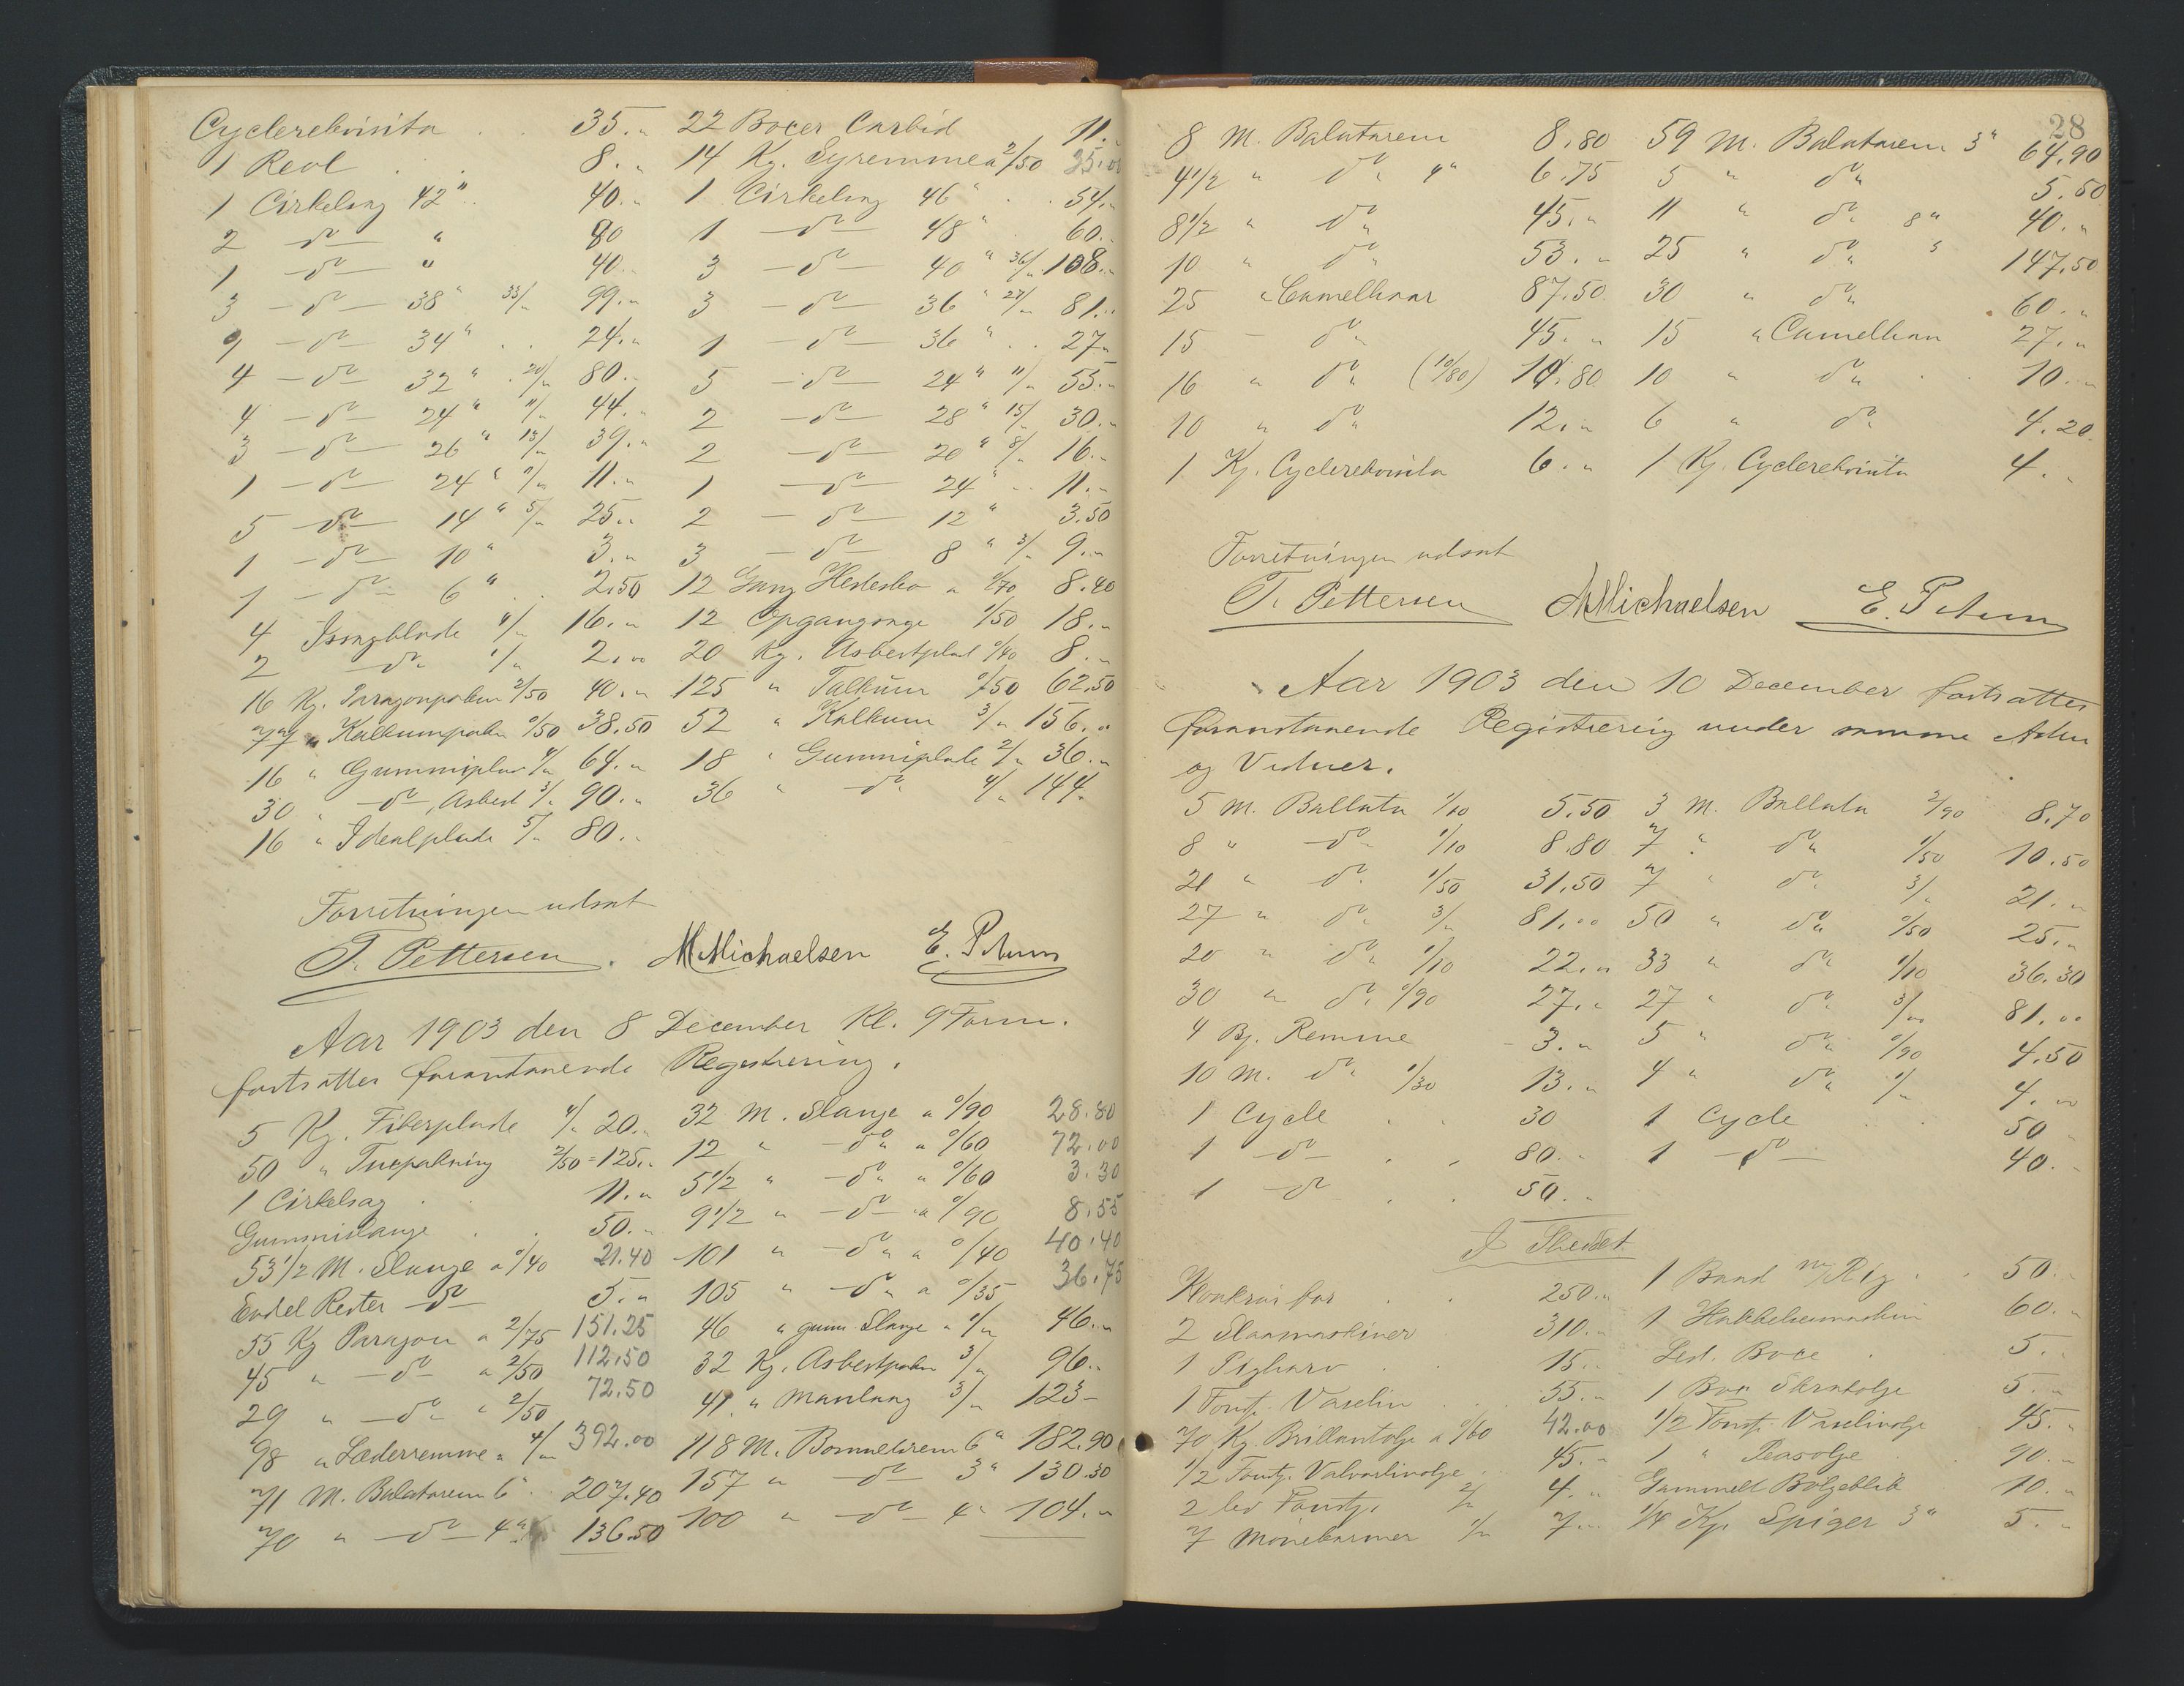 Cyclerekvisita . . 35.„ 22 Bocer Carbid 11.„
1 Reol . . 8.„ 14 Kg. Syremme a 2/50 35.00
1 Cirkelsag 42" . 40.„ 1 Cirkelsag 46" . . 54.„
2 — do — " 80 1 — do — 48" . 60.„
1 — do — " 40.„ 3 — do — 40" 36/„ 108.„
3 — do — 38" 33/„ 99.„ 3 — do — 36" 27/„ 81.„
1 — do — 34" . . 24.„ 1 — do — 36" . . 27„
4 — do — 32" 20/„ 80.„ 5 — do — 24" 11/„ 55.„
4 — do — 24" 11/„ 44.„ 2 — do — 28" 15/ 30.„
3 — do — 26" 13/„ 39.„ 2 — do — 20" 8/„ 16.„
1 — do — 24" 11/„ 11.„ 1 — do — 24" . . 11.„
5 — do — 14" 5/„ 25.„ 2 — do — 12" 3.50
1 — do — 10" 3.„ 3 — do — 8" 3/„ 9.„
1 — do — 6" . . 2.50 12 Gang Hestesko a 0/70 8.40
4 Isagblade 4/„ 16.„ 12 Opgangsage 1/50 18.„
2 — do 1/„ 2.00 20 Kg. Asbestplad 0/40 8.„
16 Kg. Paragonpakn 2/50 40.„ 125 „ Talkum 0/50 62.50
77 „ Kalkumpakn 0/50 38.50 52 „ Kalkum 3/„ 156.„
16 „ Gummiplad 4/„ 64.„ 18 „ Gummiplade 2/„ 36.„
30 „ — do —, Asbest 3/„ 90.„ 36 „ — do 4/„ 144.
16 „ Idealplade 5/„ 80.„
Forretningen udsat
T. Pettersen. M Michaelsen E. Petersen
Aar 1903 den 8 December Kl. 9 Form.
fortsattes foranstaaende Registrering.
5 Kg. Fiberplade 4/„ 20.„ 32 M. Slange a 0/90 28.80
50 „ Tuepakning 2/50 = 125.„ 12 „ — do „ a 0/60 72.00
1 Cirkelsag . 11.„ 5 1/2 „ — do „ „ 0/60 3.30
Gummislange . . 50.„ 9 1/2 „ — do — a 0/90 8.55
53 1/2 M. Slange a 0/40 21.40 101 „ — do „ a 0/40 40.40
Endel Rester — do — 5.„ 105 „ — do „ a 0/35 36.75
55 Kg Paragon a 2/75 151.25 46 „ gum Slange a 1/„ 46.„
45 „ — do — a 2/50 112.50 32 Kg. Asbestpakn 3/„ 96.„
29 „ — do — „ 2/50 72.50 41 „ Manlaag 3/„ 123–
98 „ Læderremme a 4/„ 392.00 118 M. Bomuldsrem 6" 182.90
71 M. Balatarem 6" . 207.40 157 „ — do — 3" 130.30
70 „ — do — 4" 136.50 100 „ — do — 4" 104.„
28
8 M. Balatarem 8.80 59 M. Balatarem 3" 64.90
4 1/2 „ do „ 4" 6.75 5 „ do „ 5.50
8 1/2 „ do „ 45.„ 11 „ do „ 8" 40.„
10 „ do „ 53.„ 25 „ do „ " 147.50
25 „ Camelhaar 87.50 30 „ do „ 60.„
15 – do „ 45.„ 15 „ Camelhaar 27.„
16 „ do „ (10/80) 10.80 10 „ do „ . . 10.„
10 „ do „ 12.„ 6 „ do „ 4.20
1 Kg. Cyclerekvisita 6.„ 1 Kg. Cyclerekvisita 4.„
Forretningen udsat
T. Pettersen M Michaelsen E. Petersen
Aar 1903 den 10 December fortsattes
foranstaaende Registrering under samme Adm
og Vidner.
5 M. Ballata 1/10 5.50 3 M. Ballata 2/90 8.70
8 „ — do — 1/10 8.80 7 „ do „ 1/50 10.50
21 „ do . 1/50 31.50 7 „ do „ 3/ 21.„
27 „ do „ 3/„ 81.00 50 „ do „ 0/50 25.„
20 „ do „ 1/10 22.„ 33 „ do „ 1/10 36.30
30 „ do „ 0/90 27.„ 27 „ do „ 3/00 81.00
4 Bj. Remme - 3.„ 5 „ do „ 0/90 4.50
10 M. do „ 1/30 13.„ 4 „ do „ 1/„ 4.00
1 Cycle . . 30 1 Cycle . . 50
1 — do — . . 80.„ 1 — do — 40.„
1 — do . . 50.„
I Skuddet
250.„ 1 50.„
2 Slaamaskiner 310.„ 1 Hakkelsemaskin 60.„
1 Pigharv . . 15.„ Led. Boce . 5.„
1 Foustg. Vaselin . . 55.„ 1 Boce Skratolje 5.„
70 Kg. Brillantolje a 0/60 42.00 1/2 Foustg. Vaselinolje 45.„
1/2 Foustg. Valvorlinolje . 45.„ 1 „ Rasolje . 90.„
2 2/„ 4.„ Gammelt Bølgeblik 10.„
7 1/„ 7.„ 1/4 Kg. Spiger 3" 5.„